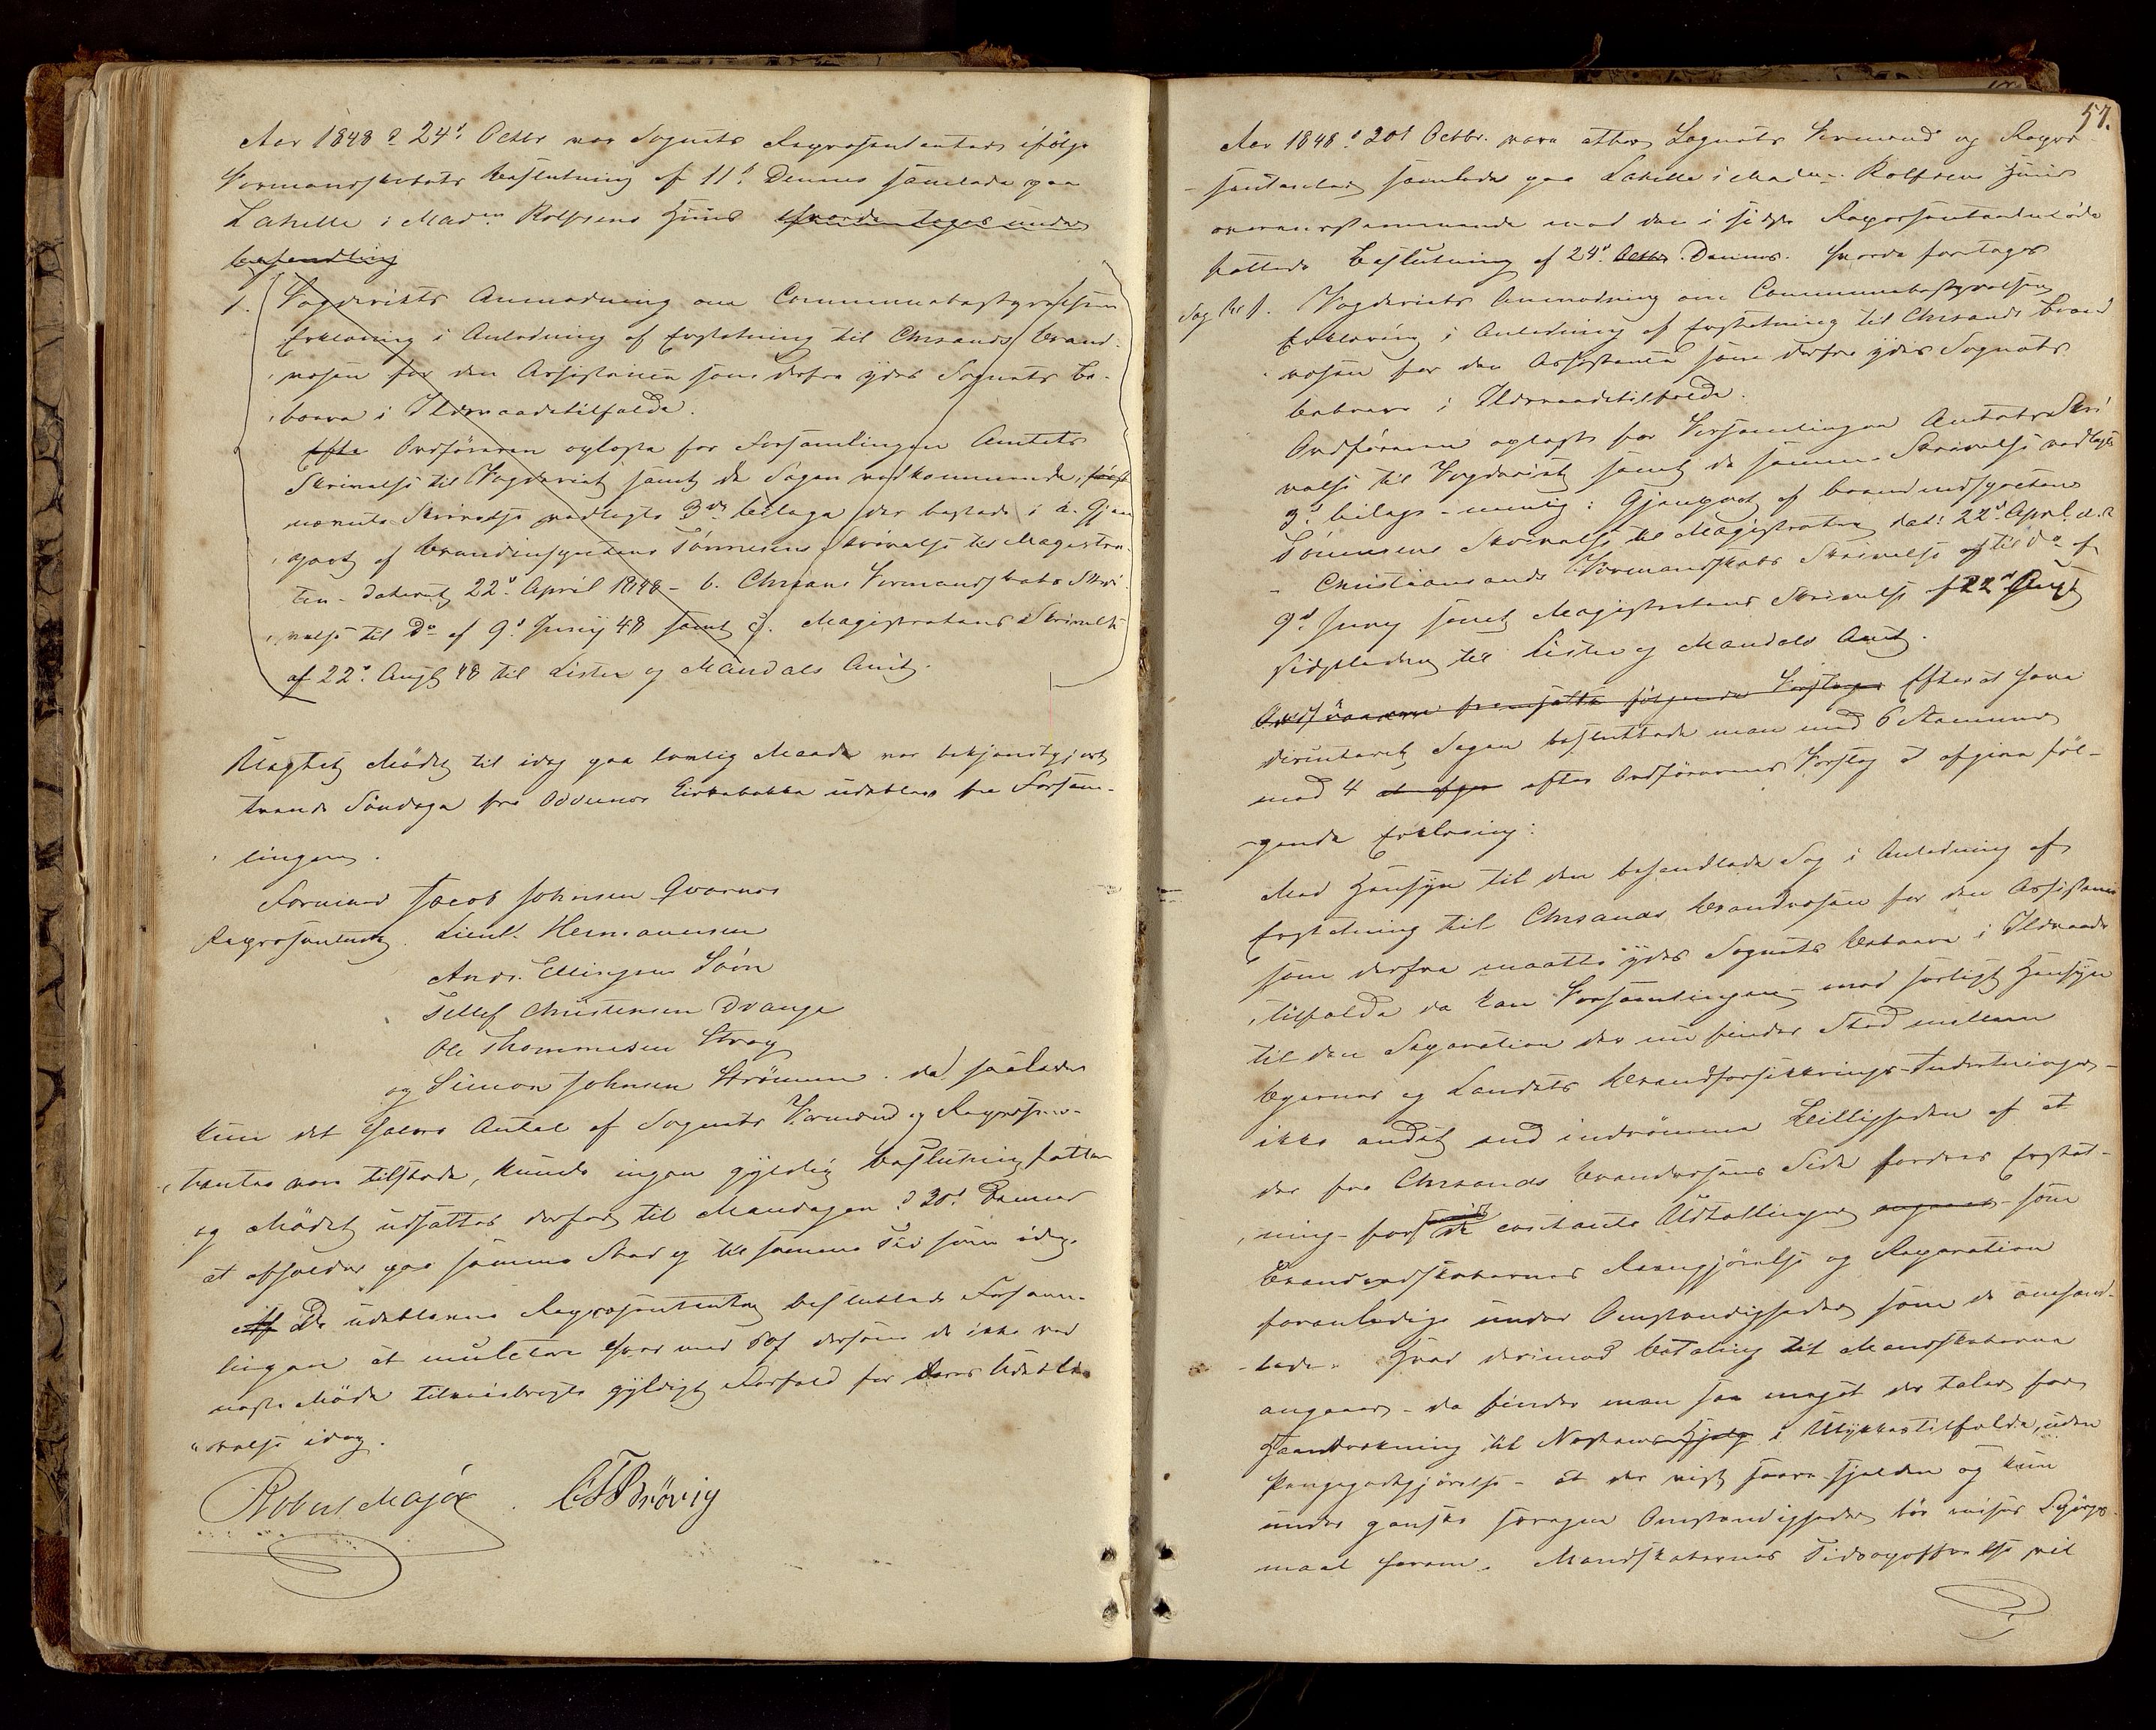 Aar 1848 d 24d Octbr var Sognets Repræsentanter ifølge
Formandskabets Beslutning af 11d Dennes samlede paa
Lahelle i Madm Rolfsens Huus hvorda toges under
behandling
1. Fogderiets Anmodning om Communebestyrelsens
Erklæring i Anledning af Erstatning til Chrsands Brand-
væsen for den Assistence som derfra ydes Sognets Be-
boere i Ildsvaadetilfælde.
Efte Ordføreren oplæste for Forsamlingen Amtets
Skrivelse til Fogderiet samt de Sagen vedkommende, først
nævnte Skrivelse vedlagte 3de Bilage der bestode i a. Gjen-
part af Brandinspecteur Tönnesens Skrivelse til Magistra-
ten - dateret 22d April 1848 - b. Chrsans Formandskabs Skri-
velse til Do af 9d Juny 48 samt c. Magistratens Skrivelse
af 22d Augt 48 til Lister og Mandals Amt.
Uagtet Mødet til idag paa lovlig Maade var bekjendtgjort
tvende Søndage fra Oddernes Kirkebakke udeblev fra Forsam-
lingen.
Formænd Jacob Johnsen Qvarnes
Repræsentant. Lieut. Hermansen
Andr. Ellingsen Hoön
Tellef Christensen Drange
Ole Thommesen Stray
og Simon Johnsen Strömme. da saaledes
kun det halve Antal af Sognets Formænd og Repræsen-
tanter vare tilstede, kunde ingen gyldig Beslutning fattes
og Mødet udsattes derfor til Mandagen d 30d Dennes
at afholdes paa samme Sted og til samme Tid som idag.
Af De udeblevne Repræsentanter besluttede Forsam-
lingen at mulctere hver med 60s dersom de ikke ved
næste Møde tilveiebragte gyldigt Forfald for deres Udeble-
velse idag.
Robert Majör. CTBrövig
57.
Aar 1848 d 30t Octbr. vare atter Sognets Formænd og Repræ-
sentanter samlede paa Lahelle i Madm Rolfsens Huus
overensstemmende med den i sidste Repræsentantmøde
fattede Beslutning af 24d Octbr Dennes. hvorda foretages
Sag No 1. Fogderiets Anmodning om Communebestyrelsens
Erklæring i Anledning af Erstatning til Chrsands Brand
væsen for den Assistence som derfra ydes Sognets
Beboere i Ildsvaadetilfælde.
Ordføreren oplæste for Forsamlingen Amtets Skri
velse til Fogderiet samt de samme Skrivelse vedlagte
3d bilage - nemlig: Gjenpart af brandinspecteur
Tönnesens Skrivelse til Magistraten dat: 22d April d. A
Christiansands Formandskabs Skrivelse af til do af
9d Juny samt Magistratens Skrivelse af 22d Augt
sidstleden til Lister og Mandals Amt.
Ordføreren fremsatte følgende Forslag Efter at have
discuteret Sagen besluttede man med 6 Stemmer
mod 4 at afgive efter Ordførerens Forslag at afgive føl-
gende Erklæring:
Med Hensyn til den behandlede Sag i Anledning af
Erstatning til Chrsands Brandvæsen for den Assistence
som derfra maatte ydes Sognets Beboere i Ildsvaade
tilfælde da kan Forsamlingen - med særligt Hensyn
til den Separation der nu finder Sted mellem
Byernes og Landets Brandforsikkrings-Indretninger -
ikke andet end indrömme Billigheden af at
der fra Chrsands Brandvæsens Side fordres Erstat-
ning - for de contante Udtællinger angaaer - som
Brandredskabernes Reengjörelse og Reparation
foranledige under Omstændigheder som de omhand-
lede. Hvad derimod Betaling til Mandskaberne
angaaer - da finder man saa meget der taler for
Haandrækning til Næstens Hjelp i Ulykkestilfælde, uden
Pengegodtgjörelse - at der vist saare sjelden og kun
under ganske særegne Omstændigheder bör reises Spörgs-
maal herom. Mandskabernes Tidsopoffrelse vil